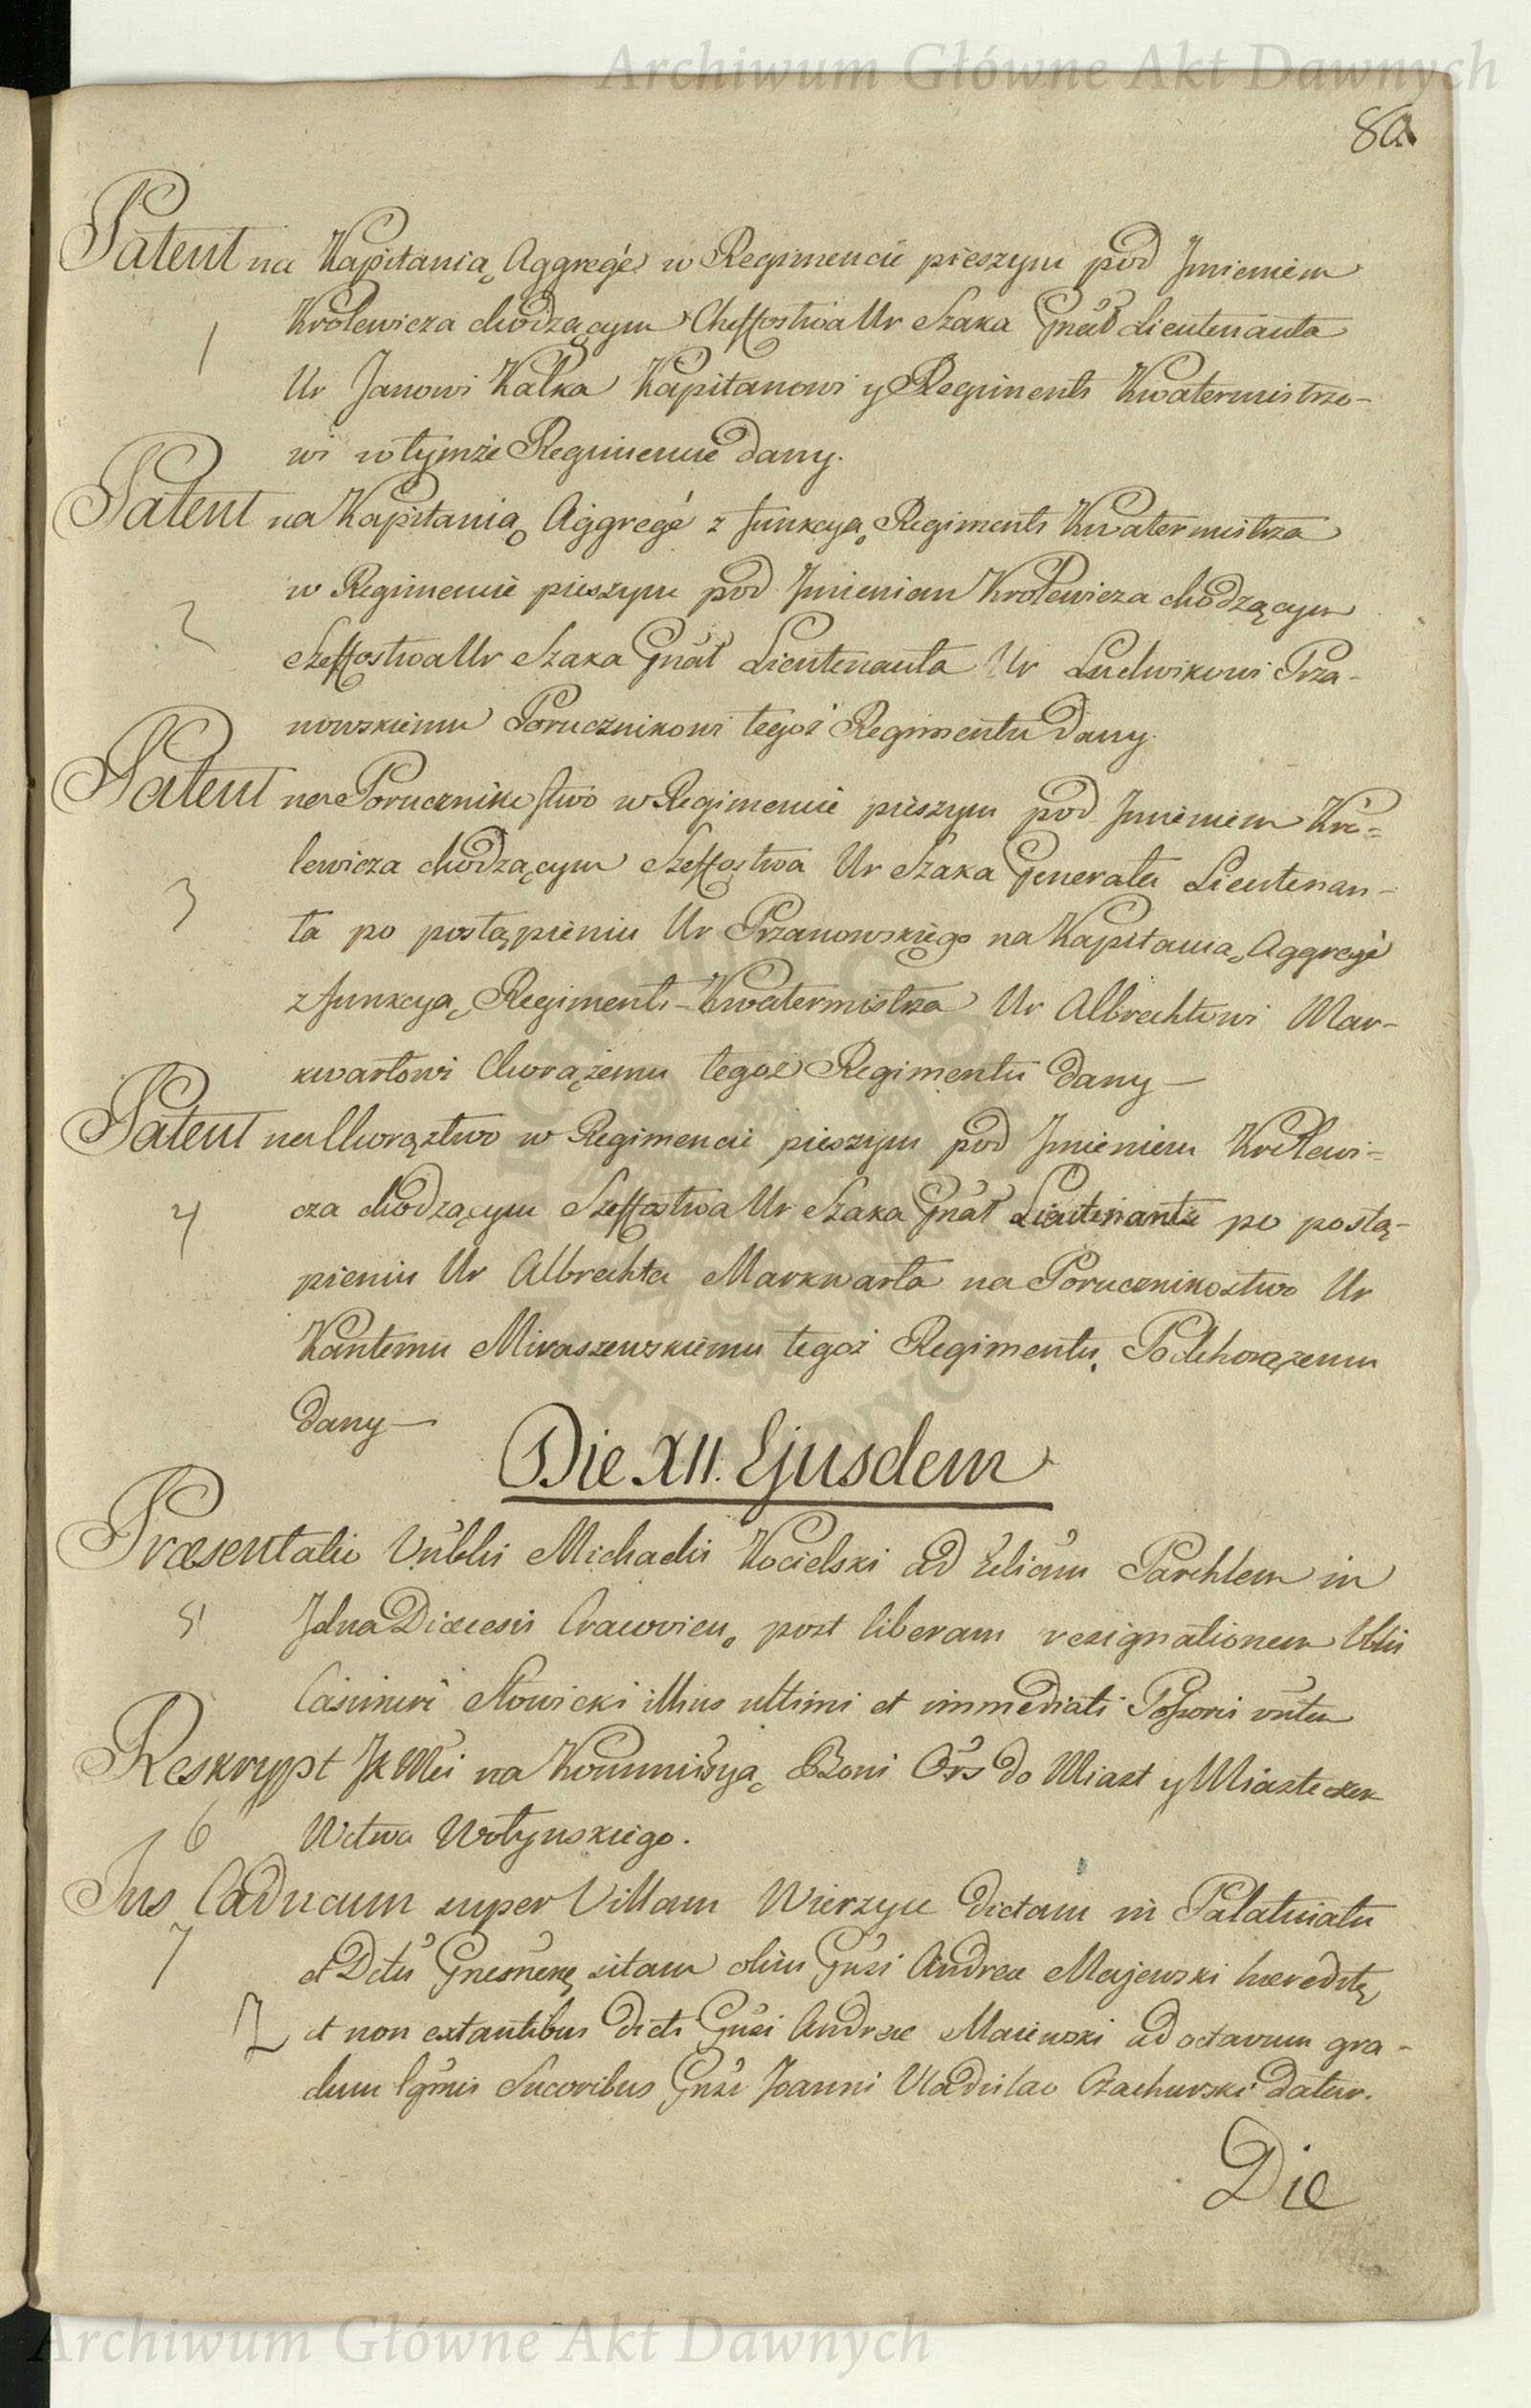 Archiwum Główne Akt Dawnych
80
Patent na Kapitanią Aggregé w Regimencie pieszym pod Jmieniem
1 Krolewicza chodzącym Cheffostwa Ur Szaka Gnáł Lieutenanta
Ur Janowi Kalka Kapitanowi y Regiments Kwatermistrzo-
wi w tymże Regimencie dany.
Patent na Kapitanią Aggregé z funkcyą Regiments Kwatermistrza
2 w Regimencie pieszym pod Jmieniem Krolewicza chodzącym
Szeffostwa Ur Szaka Gnáł Lieutenanta Ur Ludwikowi Prza-
nowskiemu Porucznikowi tegoż Regimentu dany.
Patent na Porucznikostwo w Regimencie pieszym pod Jmieniem Kro=
3 lewicza chodzącym Szeffostwa Ur Szaka Generała Lieutenan-
ta po postąpieniu Ur Przanowskiego na Kapitanią Aggregé
z funkcyą Regiments-Kwatermistrza Ur Albrechtowi Mar-
kwartowi Chorążemu tegoż Regimentu dany—
Patent na Chorąztwo w Regimencie pieszym pod Jmieniem Krolewi=
4 cza chodzącym Szeffostwa Ur Szaka Gnáł Lieutenanta po postą-
pieniu Ur Albrechta Markwarta na Porucznikostwo Ur
Kantemu Miraszewskiemu tegoż Regimentu Podchorążemu
dany—
Die XII. Ejusdem
Præsentatio Vnblis Michaelis Kocielski ad Ecliam Parchlem in
5 Diæcesis Cracovien. post liberam resignationem Vblis
Casimiri Słowicki illius ultimi et immediati Possoris
Reskrypt JKMci na Kommissyą Boni Ors do Miast y Miasteczek
6 Wctwa Wołynskiego.
Jus Caducum super Villam Wierzyce dictam in Palatinatu
7 et Dctu Gnesnens sitam olim Gnsi Andreæ Majewski hæredits
et non extantibus dicti Gnsi Andreæ Maiewski ad octavum gra-
dum lgmis Sucoribus Gnsi Joanni Vladislao Czachurski datur.
Die
Archiwum Główne Akt Dawnych